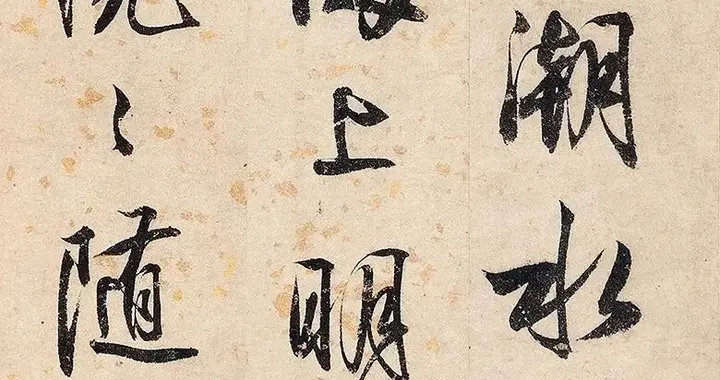 潮水
海上明
〻随